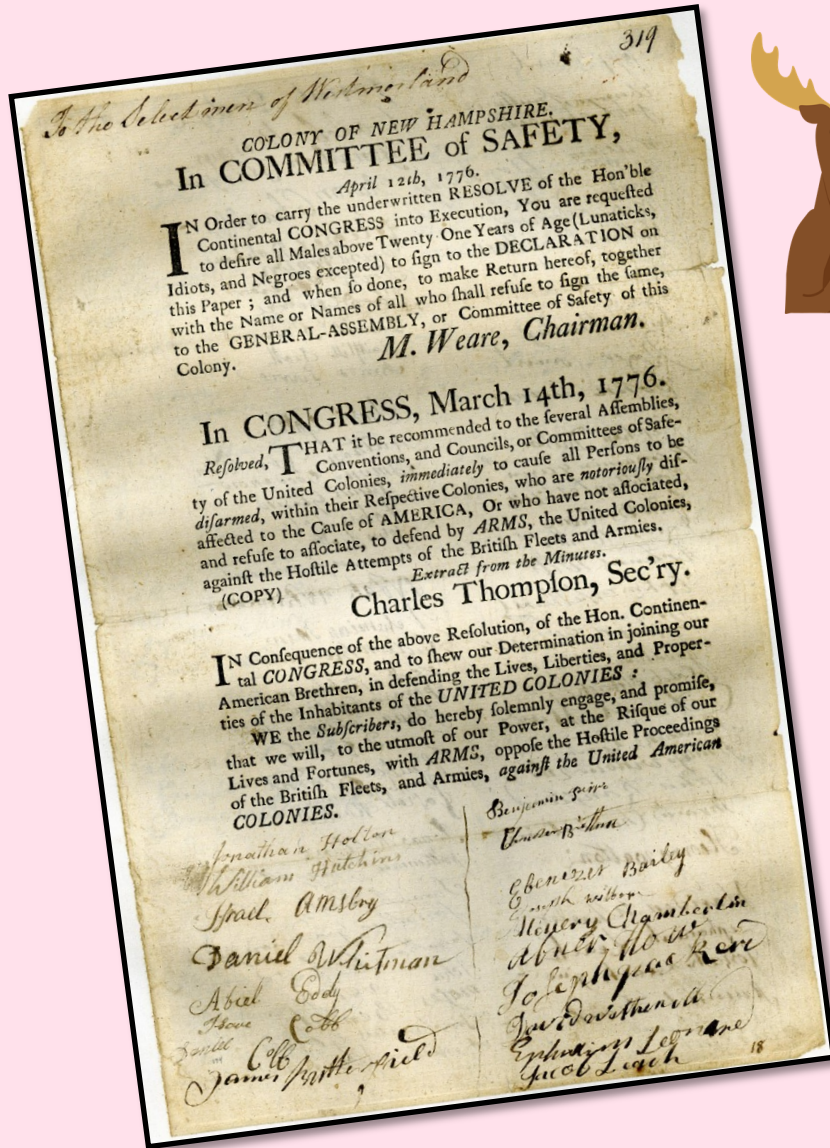 319
To the Selectmen of Westmorland
COLONY OF NEW HAMPSHIRE.
In COMMITTEE of SAFETY,
April 12th, 1776.
IN Order to carry the underwritten RESOLVE of the Hon'ble
Continental CONGRESS into Execution, You are requeſted
to deſire all Males above Twenty One Years of Age (Lunaticks,
Idiots, and Negroes excepted) to ſign to the DECLARATION on
this Paper ; and when ſo done, to make Return hereof, together
with the Name or Names of all who ſhall refuſe to ſign the ſame,
to the GENERAL-ASSEMBLY, or Committee of Safety of this
Colony.
M. Weare, Chairman.
In CONGRESS, March 14th, 1776.
Reſolved, THAT it be recommended to the ſeveral Aſſemblies,
Conventions, and Councils, or Committees of Safe-
ty of the United Colonies, immediately to cauſe all Perſons to be
diſarmed, within their Reſpective Colonies, who are notoriouſly diſ-
affected to the Cauſe of AMERICA, Or who have not aſſociated,
and refuſe to aſſociate, to defend by ARMS, the United Colonies,
againſt the Hoſtile Attempts of the Britiſh Fleets and Armies.
Extract from the Minutes.
(COPY)
Charles Thompſon, Sec'ry.
IN Conſequence of the above Reſolution, of the Hon. Continen-
tal CONGRESS, and to ſhew our Determination in joining our
American Brethren, in defending the Lives, Liberties, and Proper-
ties of the Inhabitants of the UNITED COLONIES :
WE the Subſcribers, do hereby ſolemnly engage, and promiſe,
that we will, to the utmoſt of our Power, at the Riſque of our
Lives and Fortunes, with ARMS, oppoſe the Hoſtile Proceedings
of the Britiſh Fleets, and Armies, againſt the United American
COLONIES.
Jonathan Holton
William Hutchins
Israel Amsbry
Daniel Whitman
Abiel Eddy
Cobb
Daniel Cobb
James Butterfield
Benjamin
Ebenezer Bailey
Joseph Wilber
Chamberlin
Abner How
Joseph
David
Ephraim Leonard
Jacob Leach
18